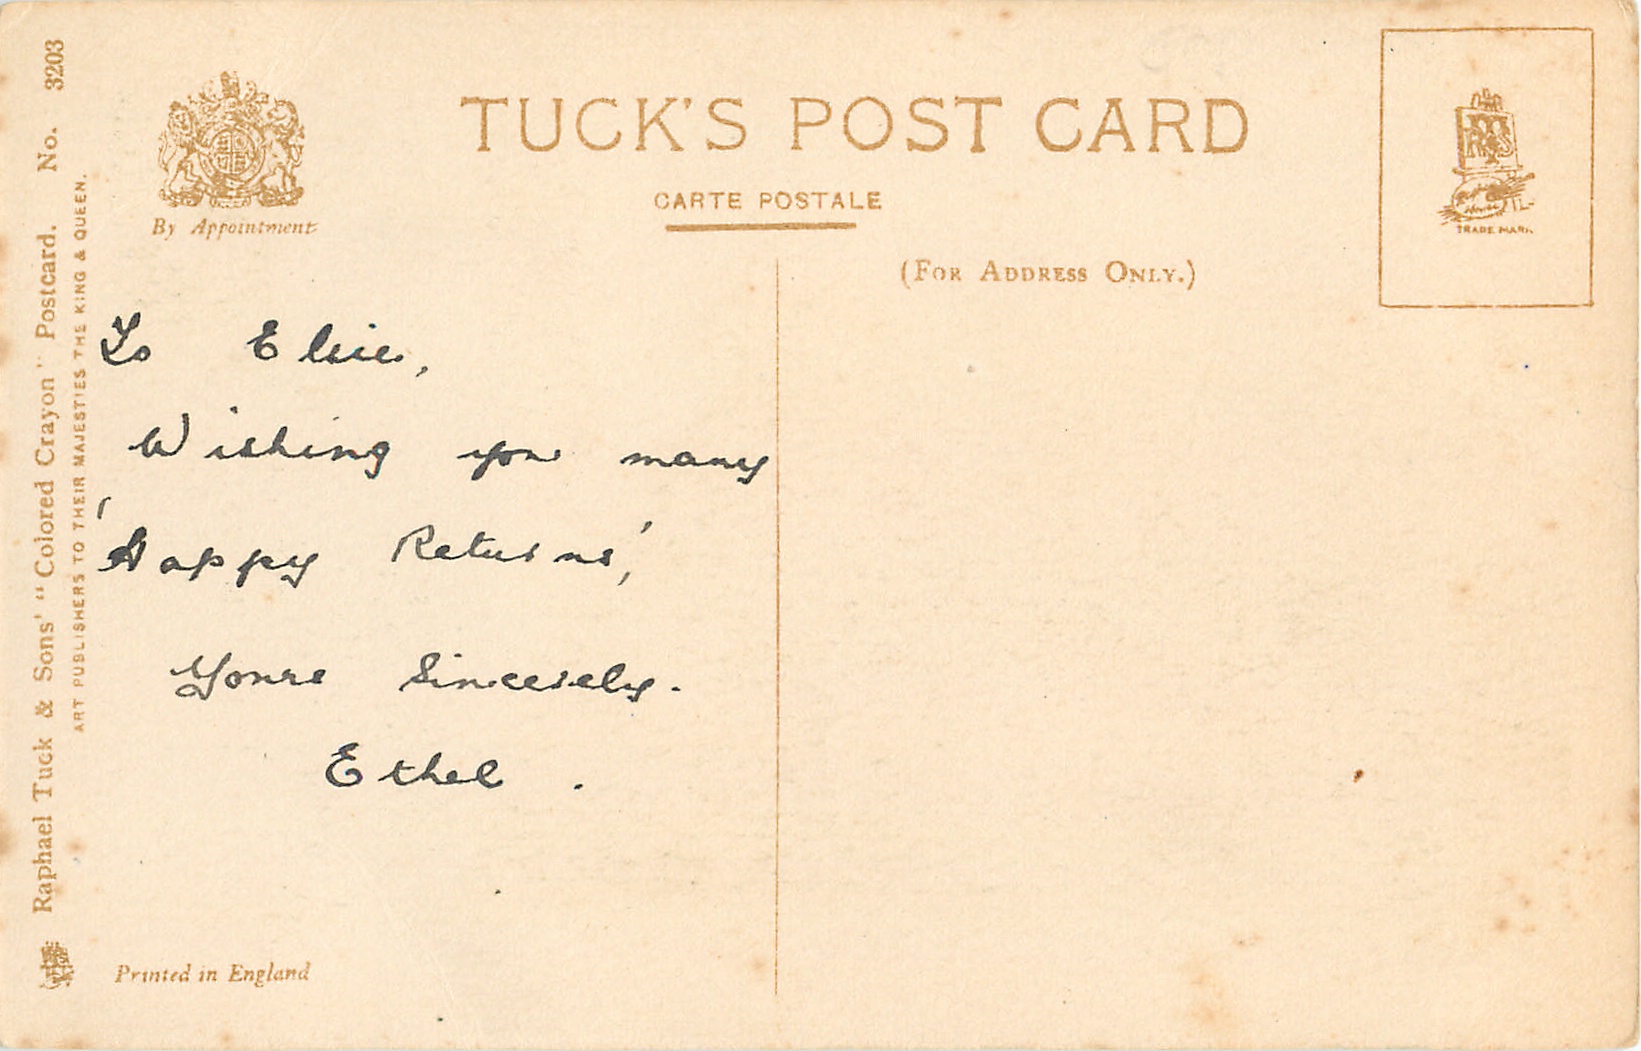 TUCK'S POST CARD
CARTE POSTALE
(FOR ADDRESS ONLY.)
By Appointment
TRADE MARK
To Elsie,
Wishing you many
'Happy Returns,'
Yours Sincerely.
Ethel .
Printed in England
Raphael Tuck & Sons' "Colored Crayon" Postcard. No. 3203
ART PUBLISHERS TO THEIR MAJESTIES THE KING & QUEEN.